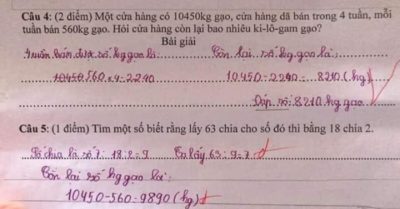 Câu 4: (2 điểm) Một cửa hàng có 10450kg gạo, cửa hàng đã bán trong 4 tuần, mỗi
tuần bán 560kg gạo. Hỏi cửa hàng còn lại bao nhiêu ki-lô-gam gạo?
Bài giải
4 tuần bán được số kg gạo là
10450 560 x 4 = 2240
Còn lai số kg gạo là:
10450 - 2240 = 8210 (kg)
Đáp số: 8210 kg gạo
Câu 5: (1 điểm) Tìm một số biết rằng lấy 63 chia cho số đó thì bằng 18 chia 2.
18 : 2 = 9
lấy 63 : 9 = 7
Còn lai số kg gạo là:
10450 - 560 = 9890 (kg)